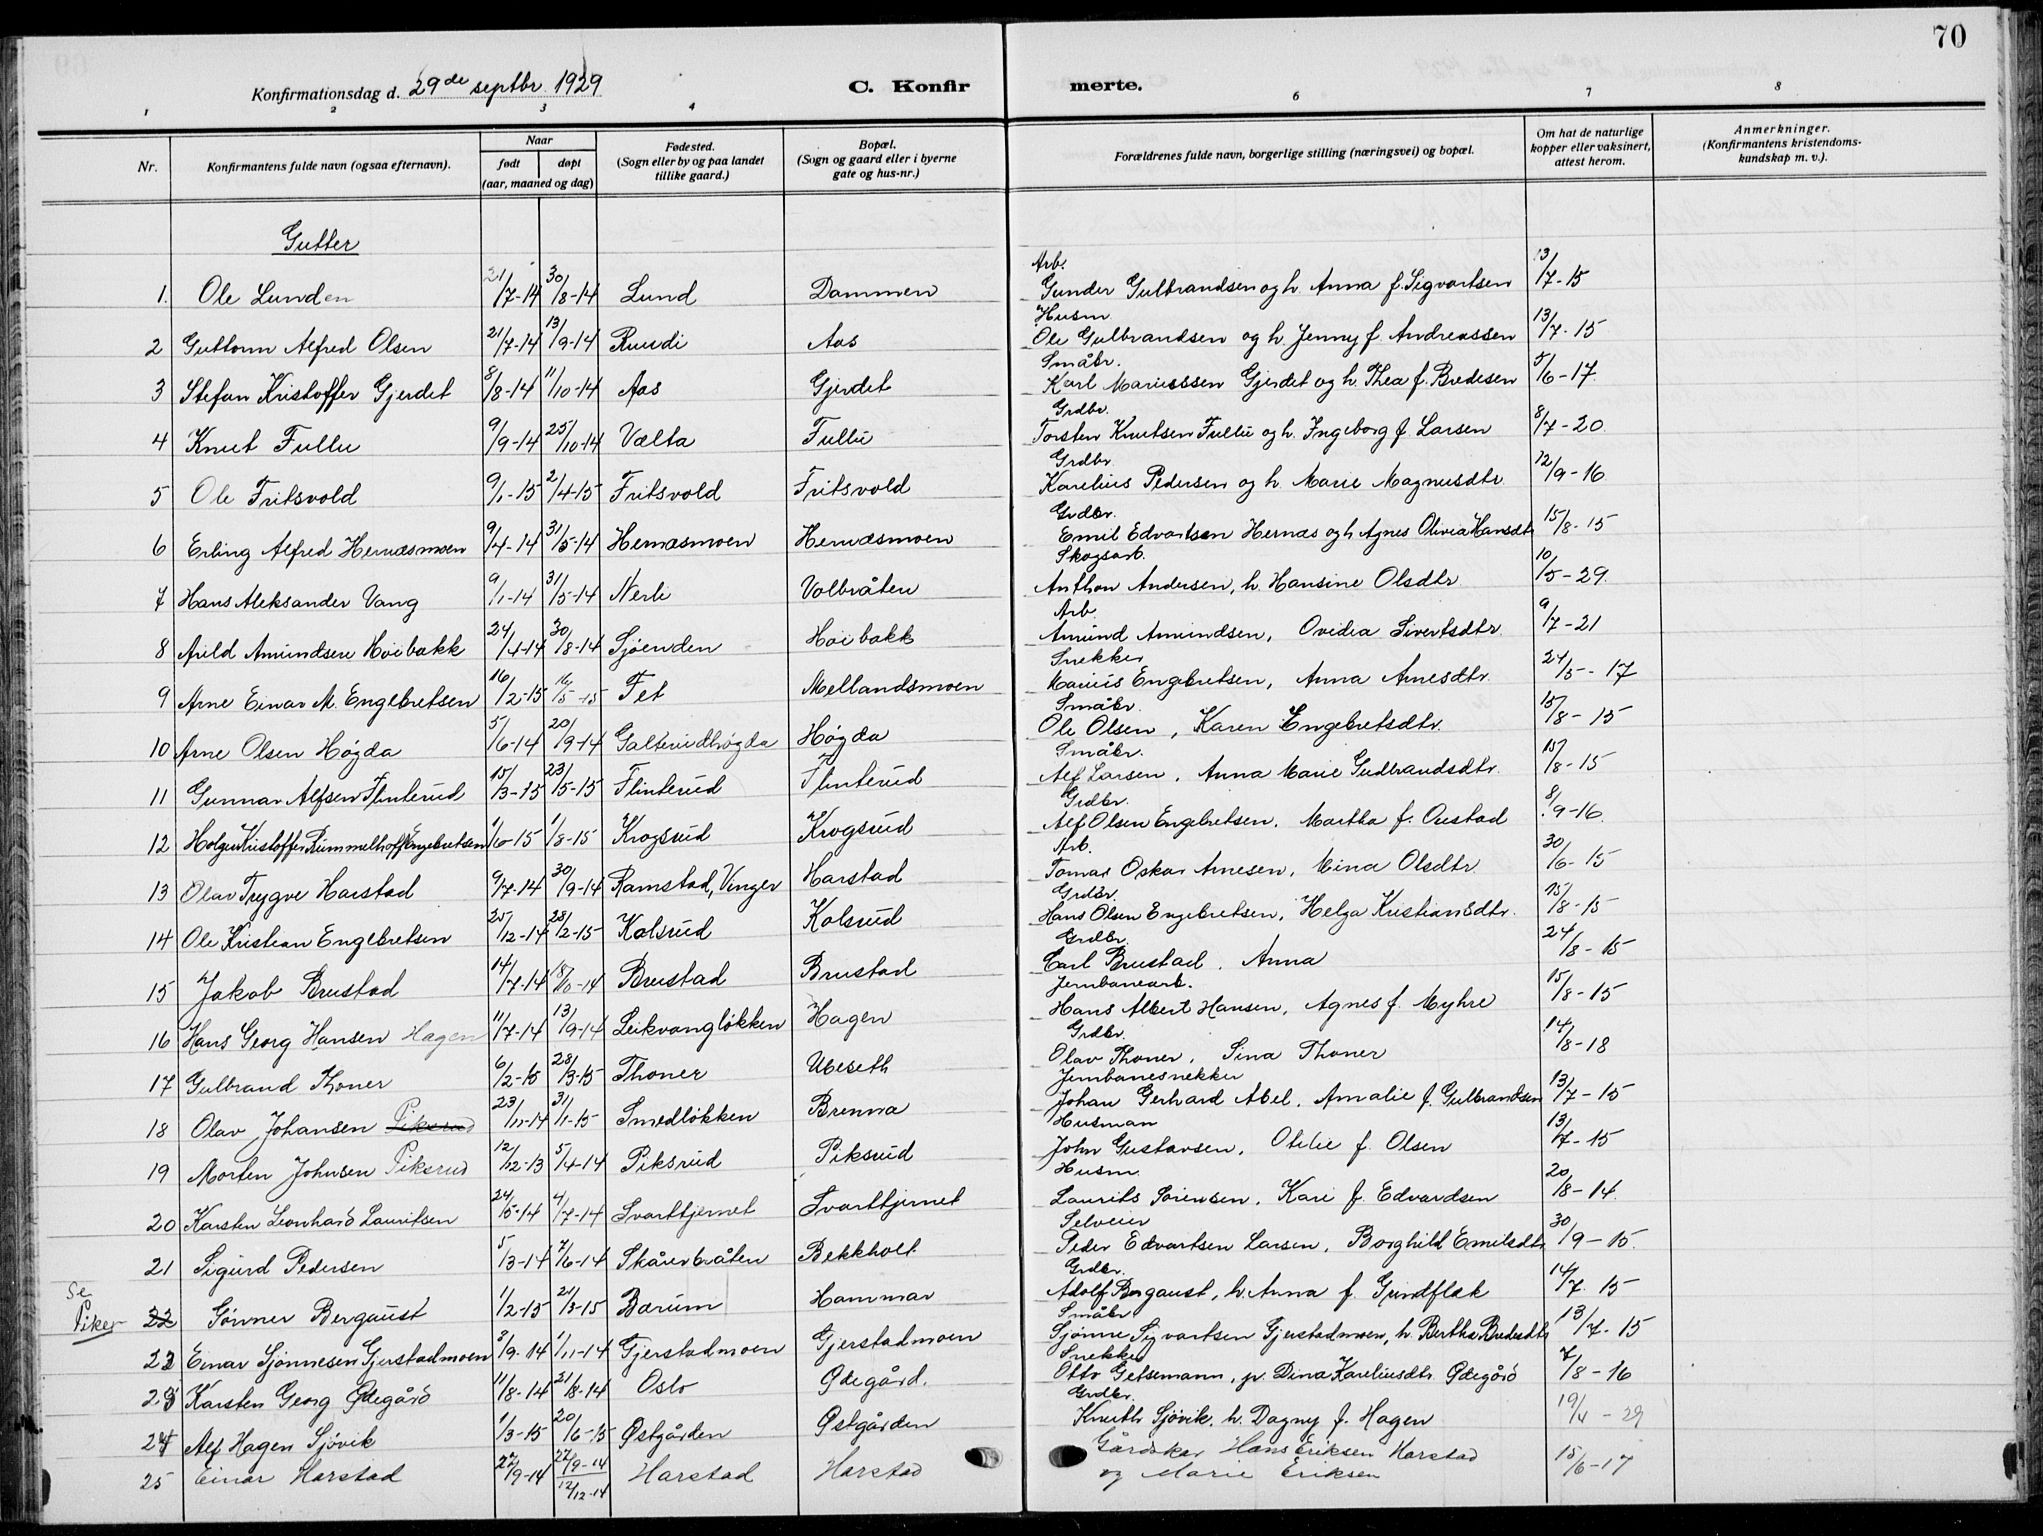 70
Konfirmationsdag d. 29de septbr. 1929
C. Konfirmerte.
1 2 3 4 6 7 8
Nr. | Konfirmantens fulde navn (ogsaa efternavn). | Naar født | døpt (aar, maaned og dag) | Fødested. (Sogn eller by og paa landet tillike gaard.) | Bopæl. (Sogn og gaard eller i byerne gate og hus-nr.) | Forældrenes fulde navn, borgerlige stilling (næringsvei) og bopæl. | Om hat de naturlige kopper eller vaksinert, attest herom. | Anmerkninger. (Konfirmantens kristendoms-kundskap m. v.).
Gutter
1. Ole Lunden 21/7-14 30/8-14 Lund Dammen Arb. Gunder Gulbrandsen og h. Anna f. Sigvartsen 13/7-15
2 Guttorm Alfred Olsen 21/7-14 13/9-14 Rundi Aas Husm. Ole Gulbrandsen og h. Jenny f. Andreassen 13/7-15
3 Stefan Kristoffer Gjerdet 8/8-14 11/10-14 Aas Gjerdet Småbr. Karl Mariussen Gjerdet og h. Thea f. Bredesen 5/6-17
4 Knut Fullu 9/9-14 25/10-14 Vælta Fullu Grdbr. Torsten Knutsen Fullu og h. Ingeborg f. Larsen 8/7-20
5 Ole Fritsvold 9/1-15 2/4-15 Fritsvold Fritsvold Grdbr. Karelius Pedersen og h. Marie Magnusdtr. 12/9-16
6 Erling Alfred Hernæsmoen 9/4-14 31/5-14 Hernæsmoen Hernæsmoen Grdbr. Emil Edvartsen Hernæs og h. Agnes Olivia Hansdtr 15/8-15
7 Hans Aleksander Vang 9/1-14 31/5-14 Nerli Volbråten Skogsarb. Anthon Andersen, h. Hansine Olsdtr 10/5-29
8 Arild Amundsen Høibakk 24/4-14 30/8-14 Sjøenden Høibakk Arb. Amund Amundsen, Ovidia Sivertsdtr. 9/7-21
9 Arne Einar M. Engebretsen 16/2-15 16/5-15 Fet Mellandsmoen Snekker Marius Engebretsen, Anna Arnesdtr. 24/5-17
10 Arne Olsen Høgda 5/6-14 20/9-14 Galterudhøgda Høgda Småbr. Ole Olsen, Karen Engebretsdtr. 15/8-15
11 Gunnar Alfsen Flinterud 15/3-15 23/5-15 Flinterud Flinterud Småbr. Alf Larsen, Anna Marie Gudbrandsdtr. 15/8-15
12 Holger Kristoffer Rummelhoff Engebretsen 1/6-15 1/8-15 Krogsrud Krogsrud Grdbr. Alf Olsen Engebretsen, Martha f. Oustad 8/9-16
13 Olav Trygve Harstad 9/7-14 30/9-14 Ramstad, Vinger Harstad Arb. Tomas Oskar Arnesen, Mina Olsdtr 30/6-15
14 Ole Kristian Engebretsen 25/12-14 28/2-15 Kolsrud Kolsrud Grdbr. Hans Olsen Engebretsen, Helga Kristiansdtr. 15/8-15
15 Jakob Brustad 14/7-14 18/10-14 Brustad Brustad Grdbr. Carl Brustad, Anna 24/8-15
16 Hans Georg Hansen Hagen 11/7-14 13/9-14 Leikvangløkken Hagen Jernbanearb. Hans Albert Hansen, Agnes f. Myhre 15/8-15
17 Gulbrand Thoner 6/2-15 28/3-15 Thoner Ueseth Grdbr. Olav Thoner, Sina Thoner 14/8-18
18 Olav Johansen Piksrud 23/11-14 31/1-15 Smedløkken Brenna Jernbanesnekker Johan Gerhard Abel, Amalie f. Gulbrandsen 13/7-15
19 Morten Johnsen Piksrud 12/12-13 5/4-14 Piksrud Piksrud Husman John Gustavsen, Otilie f. Olsen 13/7-15
20 Karsten Leonhard Lauritsen 24/5-14 4/7-14 Svarttjernet Svarttjernet Husm. Laurits Sørensen, Kari f. Edvardsen 20/8-14
21 Sigurd Pedersen 5/3-14 7/6-14 Skårerbråten Bekkholt Selveier Peder Edvartsen Larsen, Borghild Emilsdtr 30/9-15
Se Piker 22 Gunner Bergaust 1/2-15 21/3-15 Bærum Hammar Grdbr. Adolf Bergaust, h. Anna f. Grindflek 14/7-15
22 Einar Sjønnesen Gjerstadmoen 3/9-14 1/11-14 Gjerstadmoen Gjerstadmoen Småbr Sjønne Sigvartsen Gjerstadmoen, h. Berthe Bredesdtr 13/7-15
23 Karsten Georg Ødegård 11/8-14 21/8-14 Oslo Ødegård. Snekker Otto Getsemann, pr. Dina Kareliusdtr. Ødegård 7/8-16
24 Alf Hagen Sjøvik 1/3-15 20/6-15 Østgården Østgården Grdbr. Knuth Sjøvik, h. Dagny f. Hagen 19/4-29
25 Einar Harstad 27/9-14 27/9-14 12/12-14 Harstad Harstad Gårdskar Hans Eriksen Harstad og Marie Eriksen 15/6-17